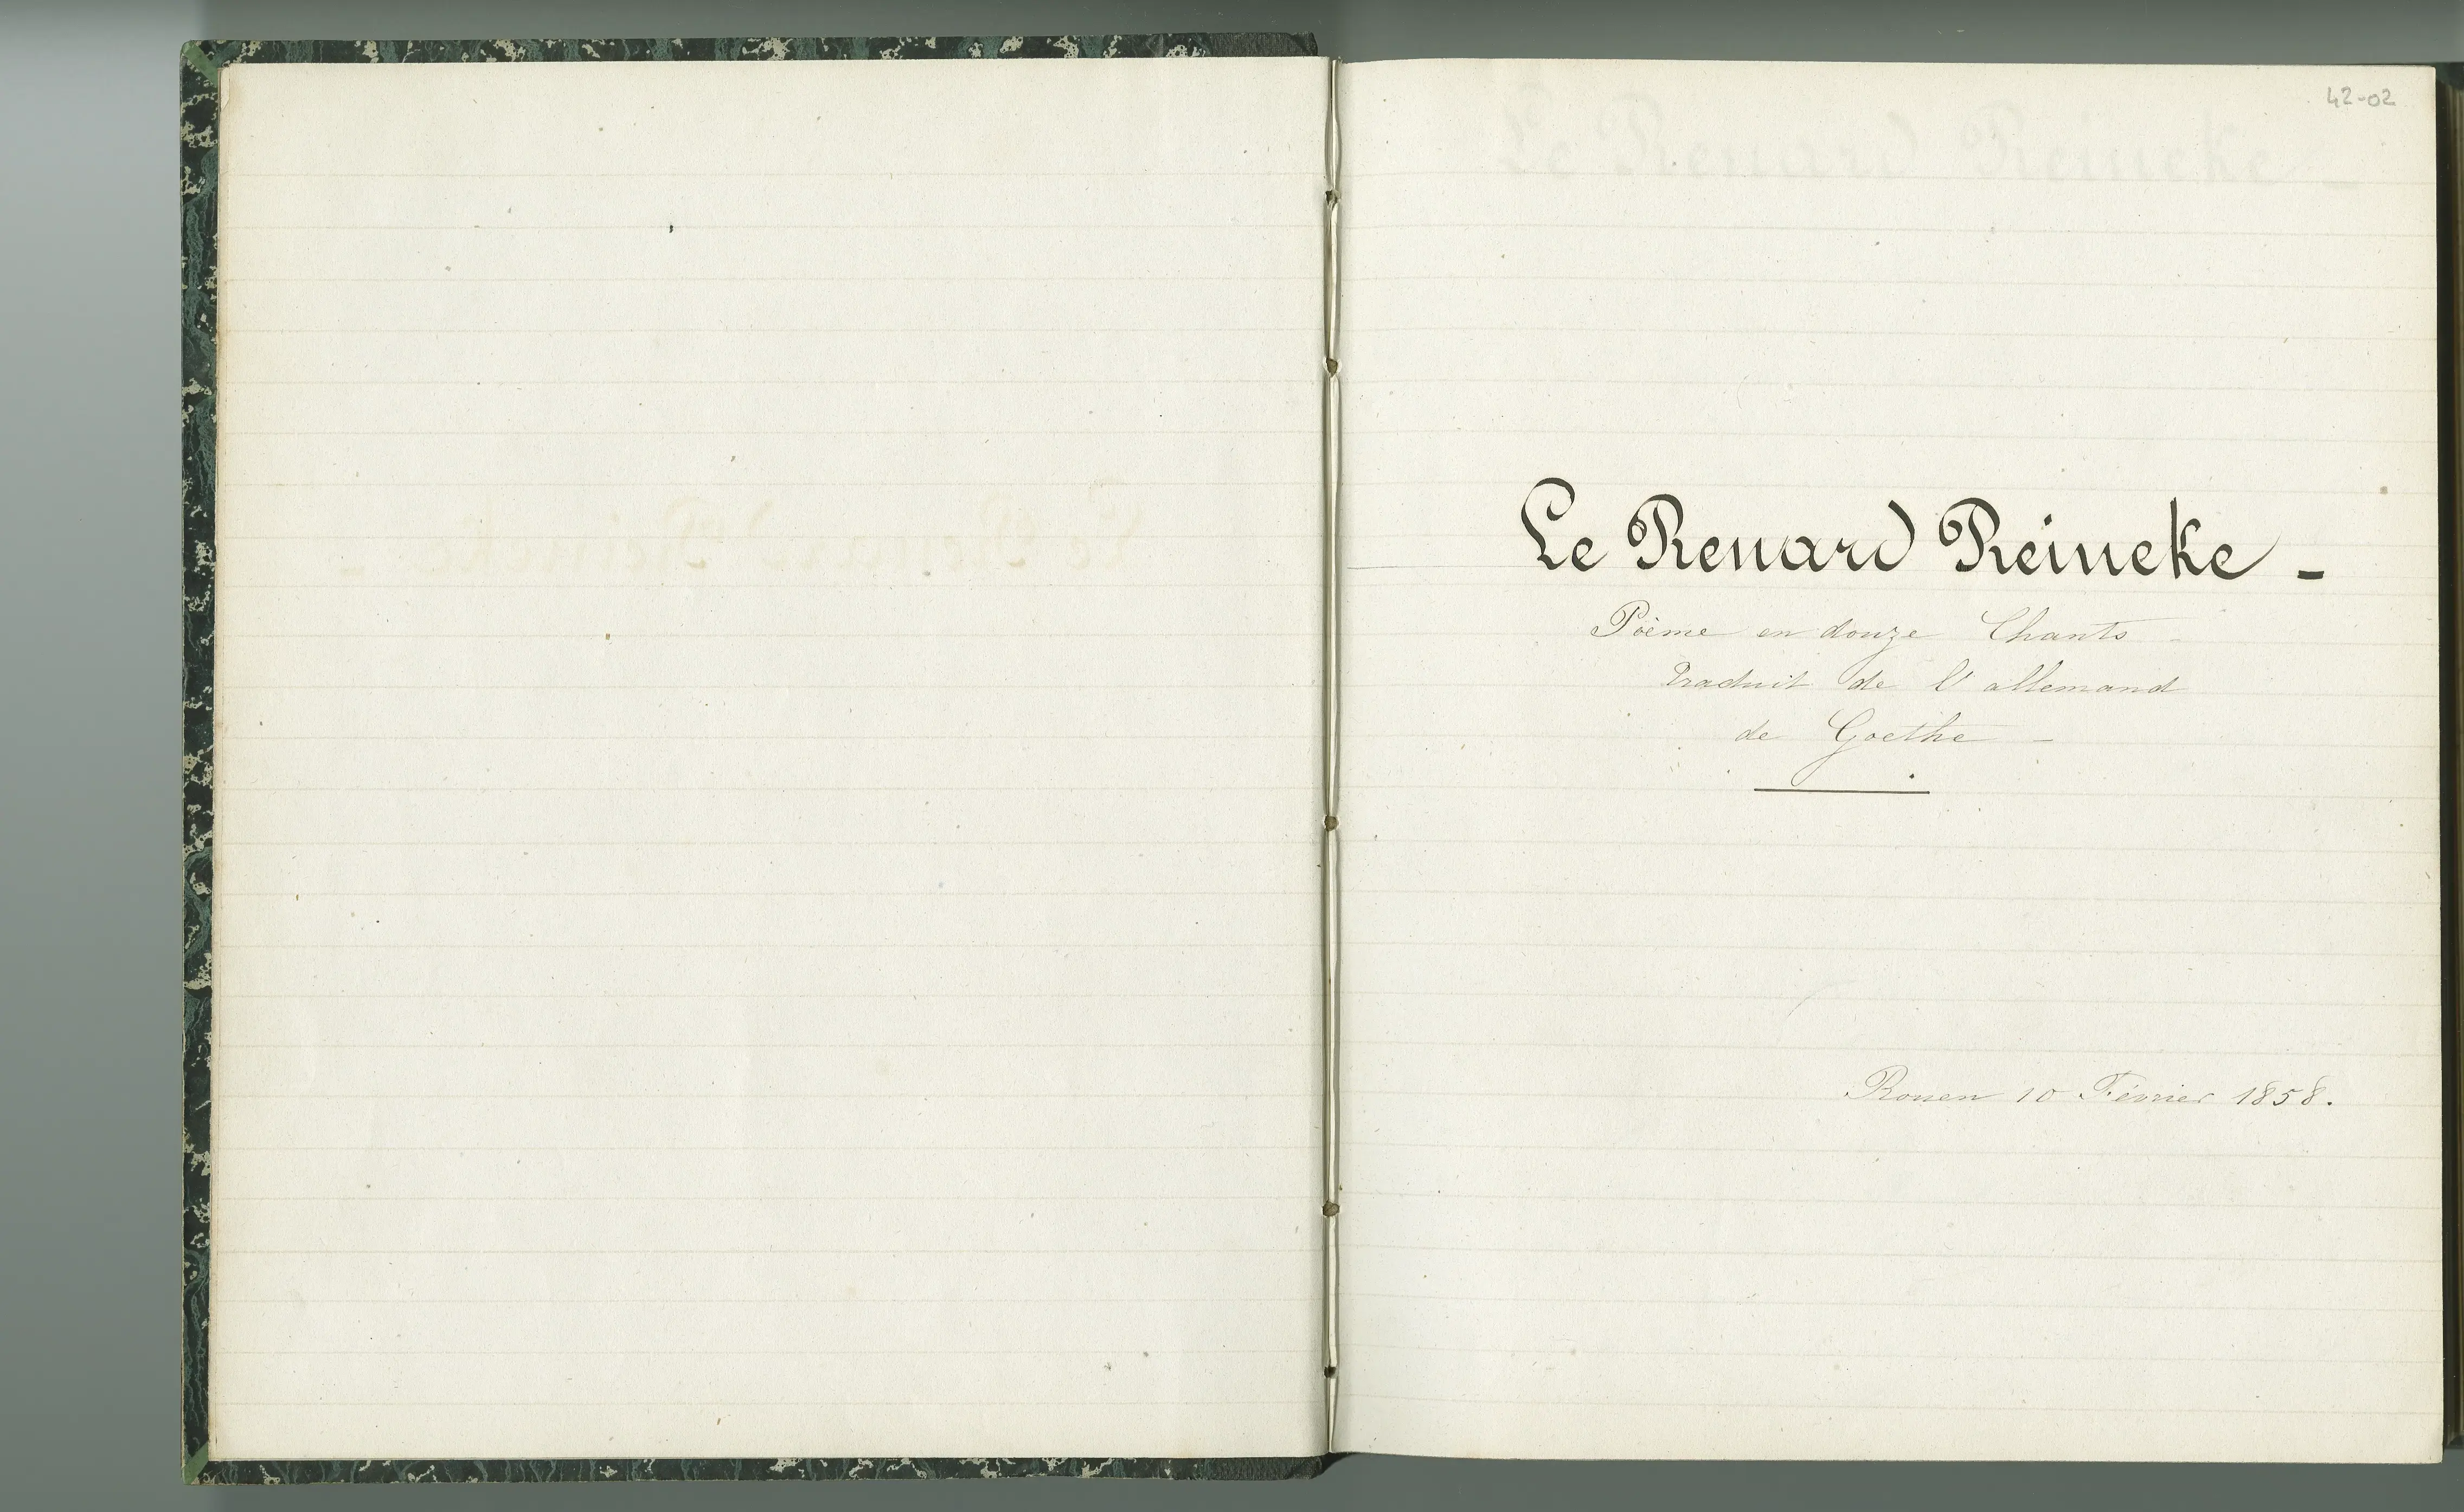 42-02
Le Renard Reineke -
Poème en douze Chants -
Traduit de l'allemand
de Goethe -
Rouen 10 Février 1858.